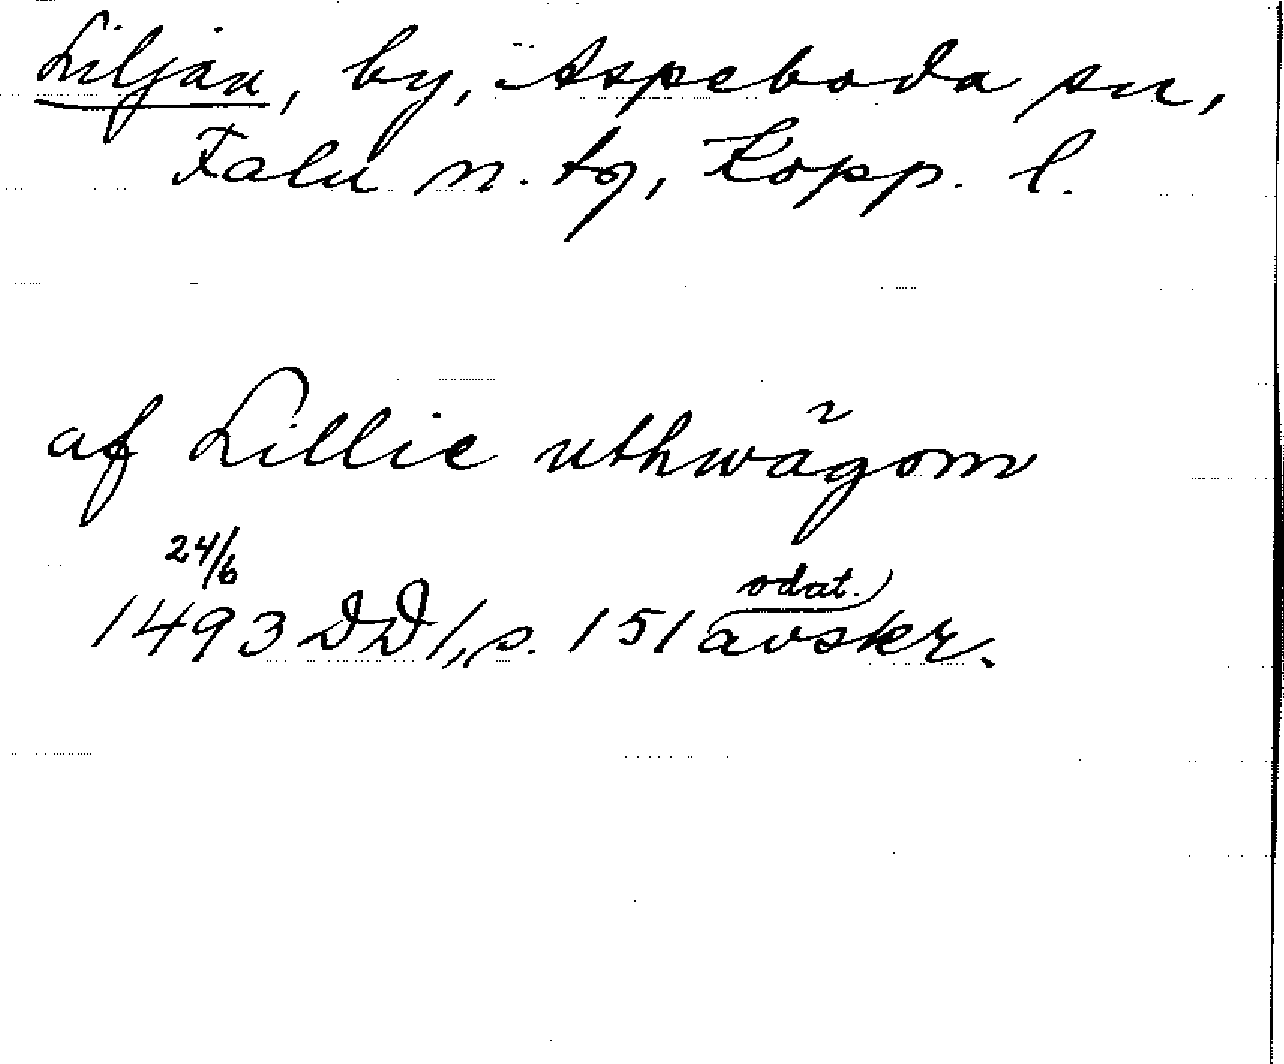 Liljan, by, Aspeboda sn,
Falu n. tg, Kopp. l.
af Lillie uthwãgom
24/6
1493 DD 1, s. 151 odat. avskr.